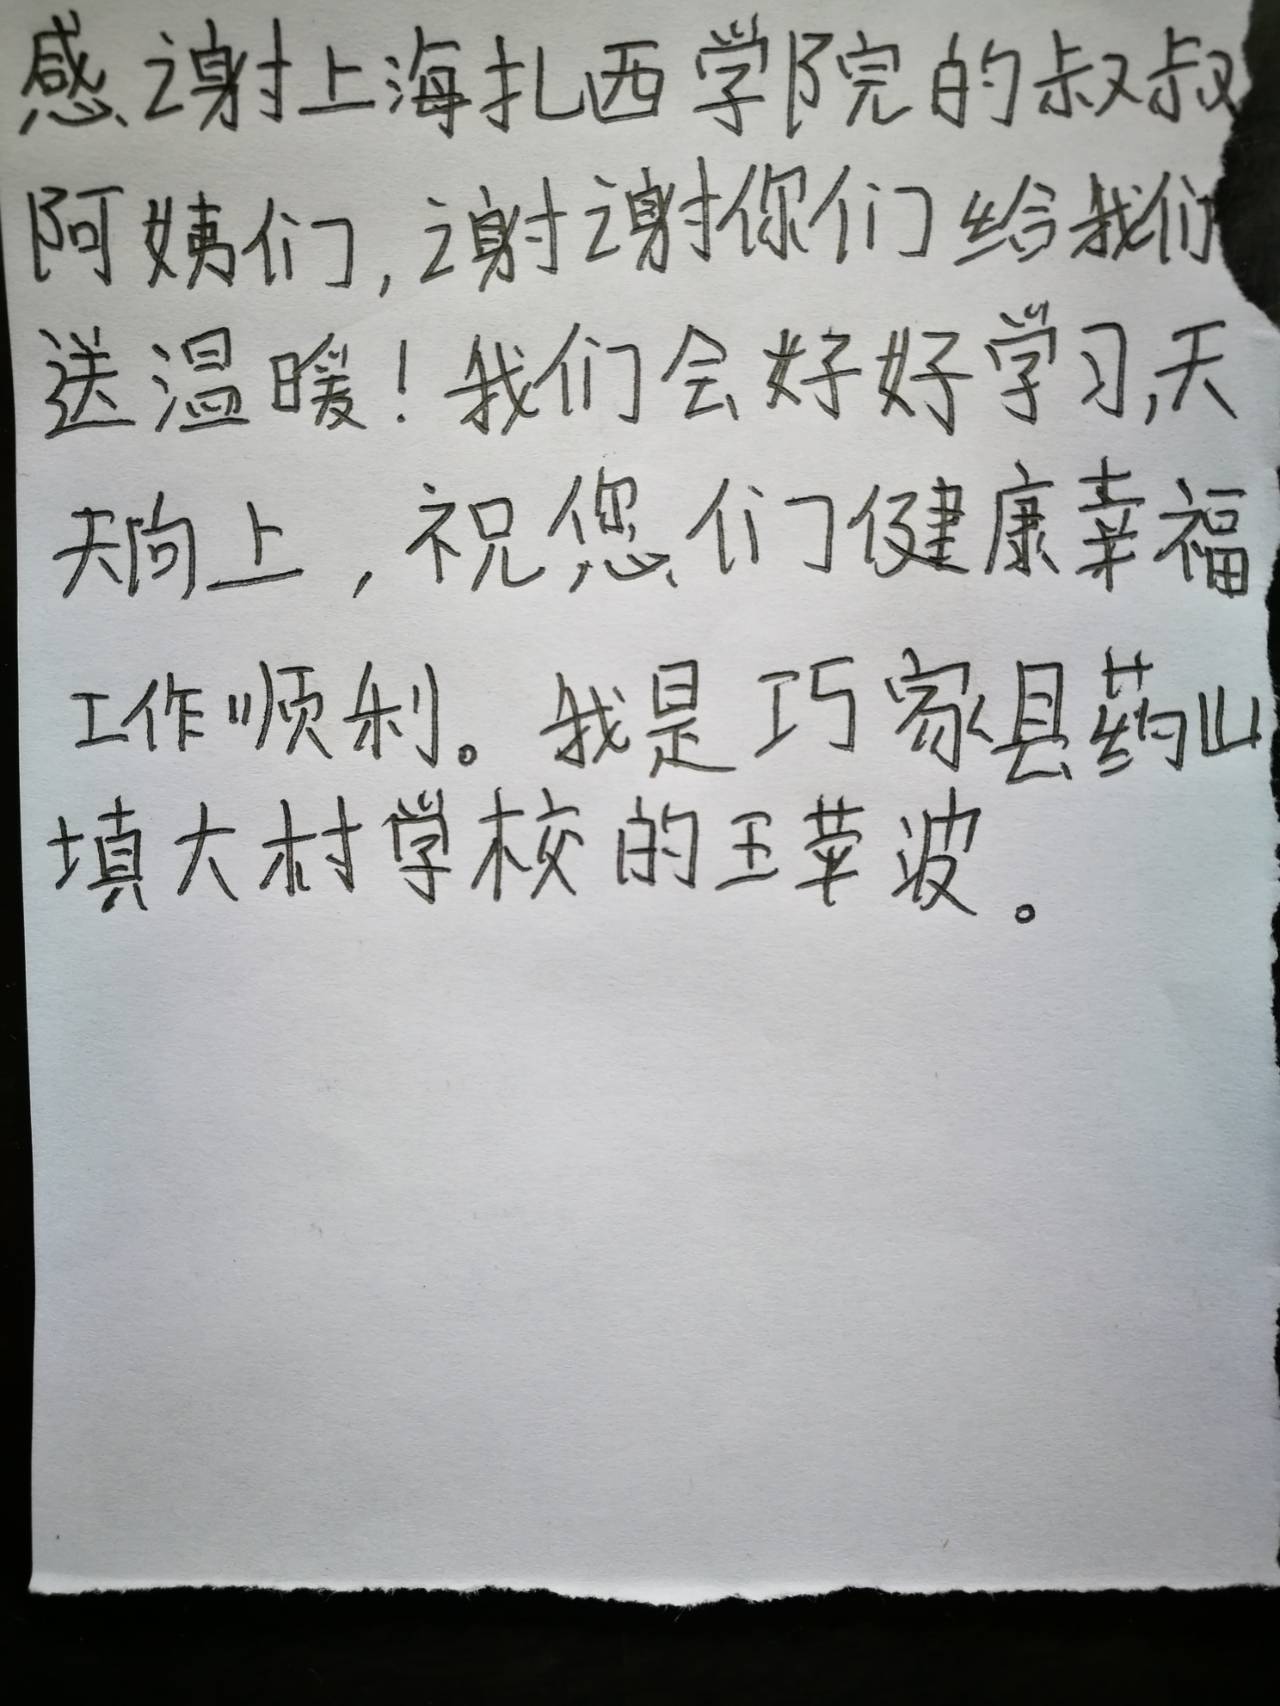 感谢上海扎西学院的叔叔
阿姨们,谢谢你们给我们
送温暖!我们会好好学习,天
天向上,祝您们健康幸福
工作顺利。我是巧家县药山
填大村学校的王苹波。